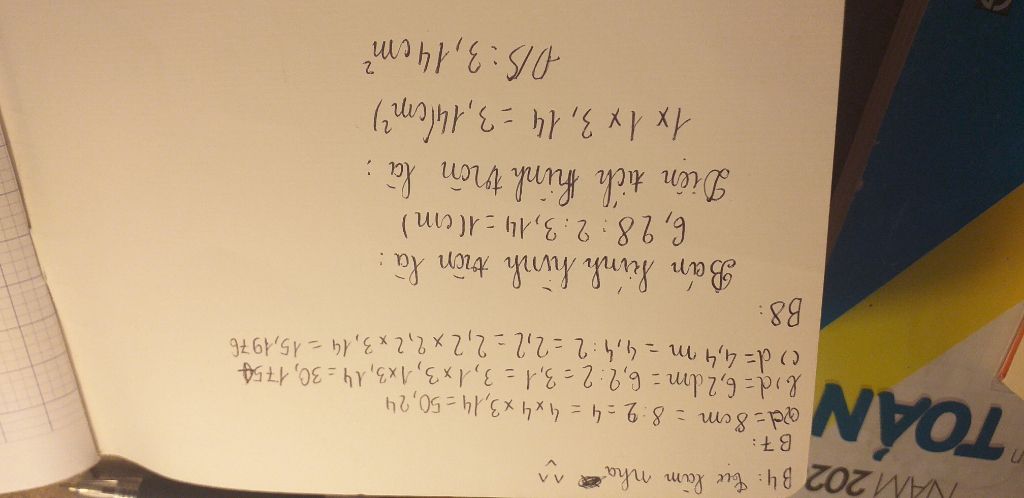 B4: tự làm nha ^^
B7:
a) d = 8cm = 8 : 2 = 4 = 4 x 4 x 3,14 = 50,24
b) d = 6,2dm = 6,2 : 2 = 3,1 = 3,1 x 3,1 x 3,14 = 30,1754
c) d = 4,4 m = 4,4 : 2 = 2,2 = 2,2 x 2,2 x 3,14 = 15,1976
B8:
Bán kính hình tròn là :
6,28 : 2 : 3,14 = 1(cm)
Diện tích hình tròn là :
1 x 1 x 3,14 = 3,14(cm²)
Đ/S : 3,14cm²
NĂM 202
TOÁN